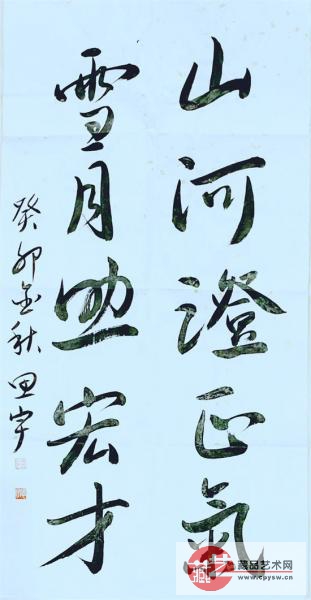 山河澄正氣
雪月助宏才
癸卯金秋 田宇
藏艺
藏品艺术网
www.cpysw.cn